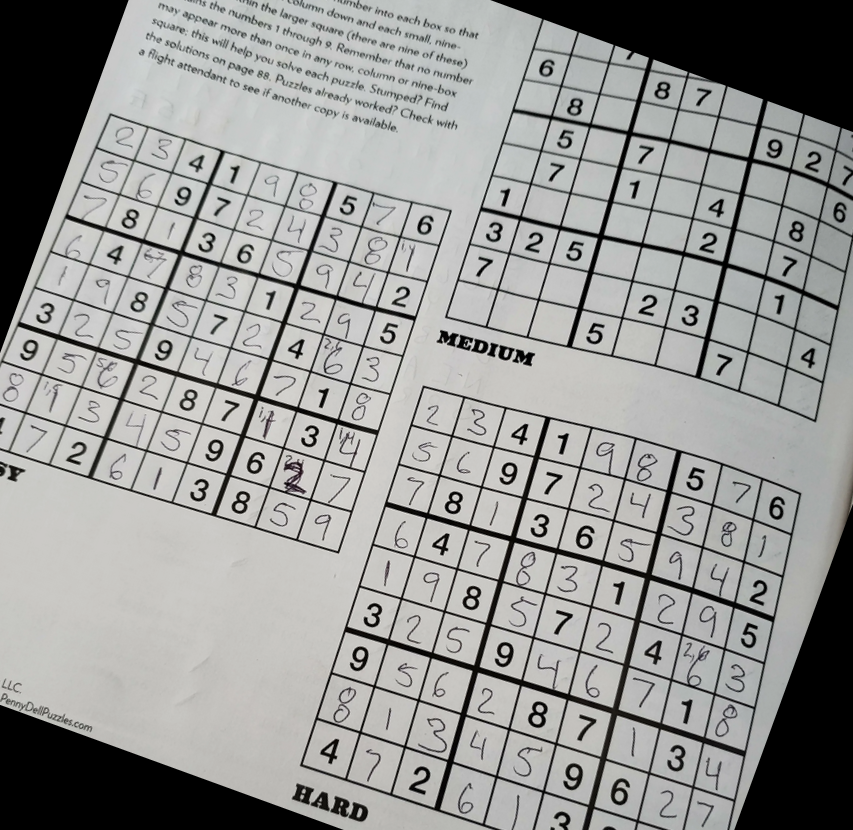 number into each box so that
column down and each small, nine-
thin the larger square (there are nine of these)
ns the numbers 1 through 9. Remember that no number
may appear more than once in any row, column or nine-box
square; this will help you solve each puzzle. Stumped? Find
the solutions on page 88. Puzzles already worked? Check with
a flight attendant to see if another copy is available.
2 3 4 1 9 8 5 7 6
5 6 9 7 2 4 3 8 1
7 8 1 3 6 5 9 4 2
6 4 7 8 3 1 2 9 5
1 9 8 5 7 2 4 6 3
3 2 5 9 4 6 7 1 8
9 5 6 2 8 7 1 3 4
8 1 3 4 5 9 6 2 7
7 2 6 1 3 8 5 9
SY
6 8 7
8 9 2 7
5 7 6
7 1 4 8
1 2 7
3 2 5 1
7 2 3 4
5 7
MEDIUM
2 3 4 1 9 8 5 7 6
5 6 9 7 2 4 3 8 1
7 8 1 3 6 5 9 4 2
6 4 7 8 3 1 2 9 5
1 9 8 5 7 2 4 6 3
3 2 5 9 4 6 7 1 8
9 5 6 2 8 7 1 3 4
8 1 3 4 5 9 6 2 7
4 7 2 6 1 3
HARD
LLC.
PennyDellPuzzles.com